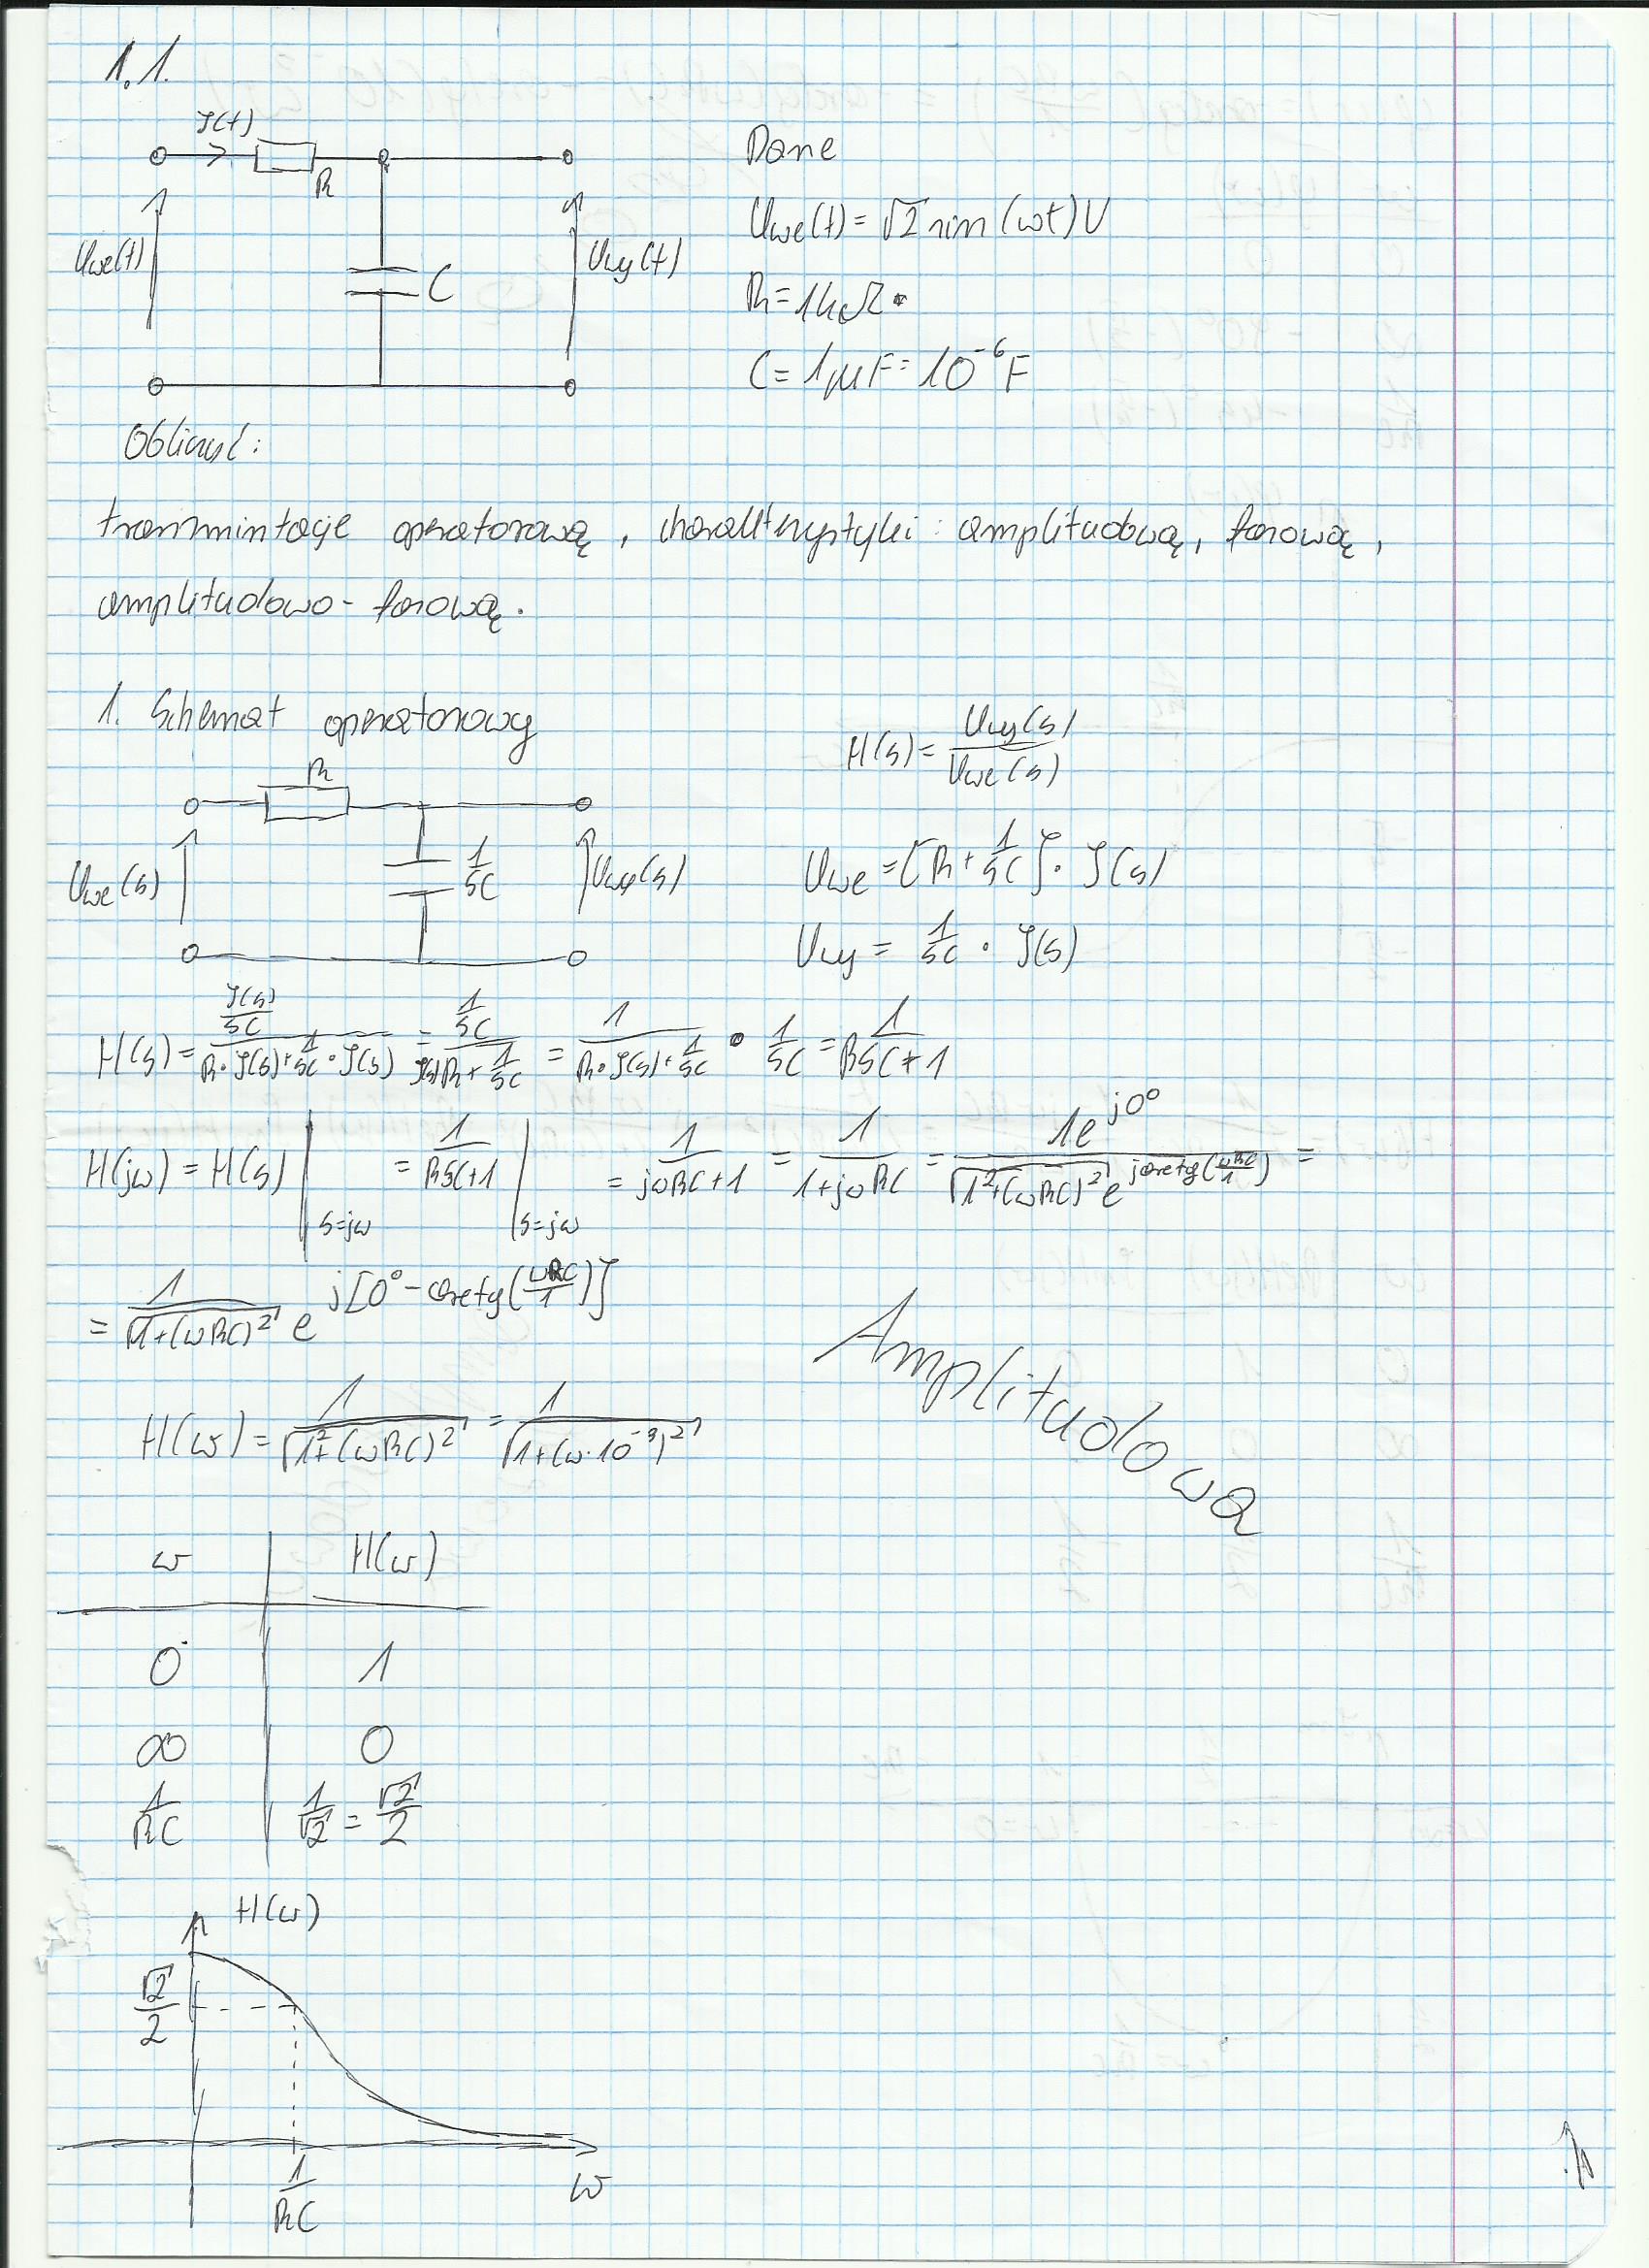 1.1.
J(t)
R
Uwe(t)
C
Uwy(t)
Dane
Uwe(t) = √2 sin (ωt) V
R = 1kΩ
C = 1μF = 10⁻⁶F
Obliczyć:
transmintacje operatorową, charakterystyki: amplitudową, fazową,
amplitudowo - fazową.
1. Schemat operatorowy
R
Uwe(s)
1/sC
Uwy(s)
H(s) = Uwy(s)/Uwe(s)
Uwe = [R + 1/sC] · J(s)
Uwy = 1/sC · J(s)
H(s) = (J(s)/sC)/(R·J(s) + 1/sC · J(s)) = (1/sC)/(R + 1/sC) = 1/(R·J(s) + 1/sC) · 1/sC = 1/(RSC + 1)
H(jω) = H(s) |s=jω = 1/(RSC+1) |s=jω = 1/(jωRC+1) = 1/(1+jωRC) = 1e^(j0°)/(√(1²+(ωRC)²) e^(j arctg(ωRC/1))) =
= 1/√(1+(ωRC)²) e^(j[0° - arctg(ωRC/1)])
Amplitudowa
H(ω) = 1/√(1²+(ωRC)²) = 1/√(1+(ω·10⁻³)²)
ω H(ω)
0 1
∞ 0
1/RC 1/√2 = √2/2
H(ω)
√2/2
1/RC
ω